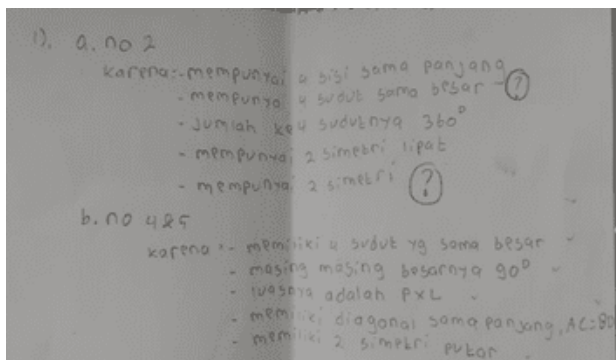 1). a. no 2
karena:- mempunyai 4 sisi sama panjang
- mempunyai 4 sudut sama besar - ?
- Jumlah ke4 sudutnya 360°
- mempunyai 2 simetri lipat
- mempunyai 2 simetri ?
b. no 4&5
karena :- memiliki 4 sudut yg sama besar
- masing masing besarnya 90°
- luasnya adalah PXL
- memiliki diagonal sama panjang, AC=BD
- memiliki 2 simetri putar